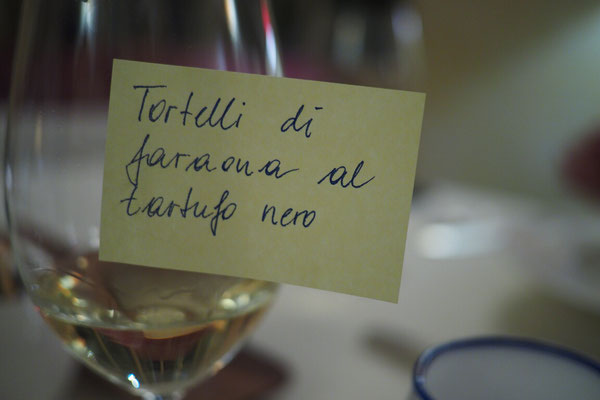 Tortelli di
faraona al
tartufo nero